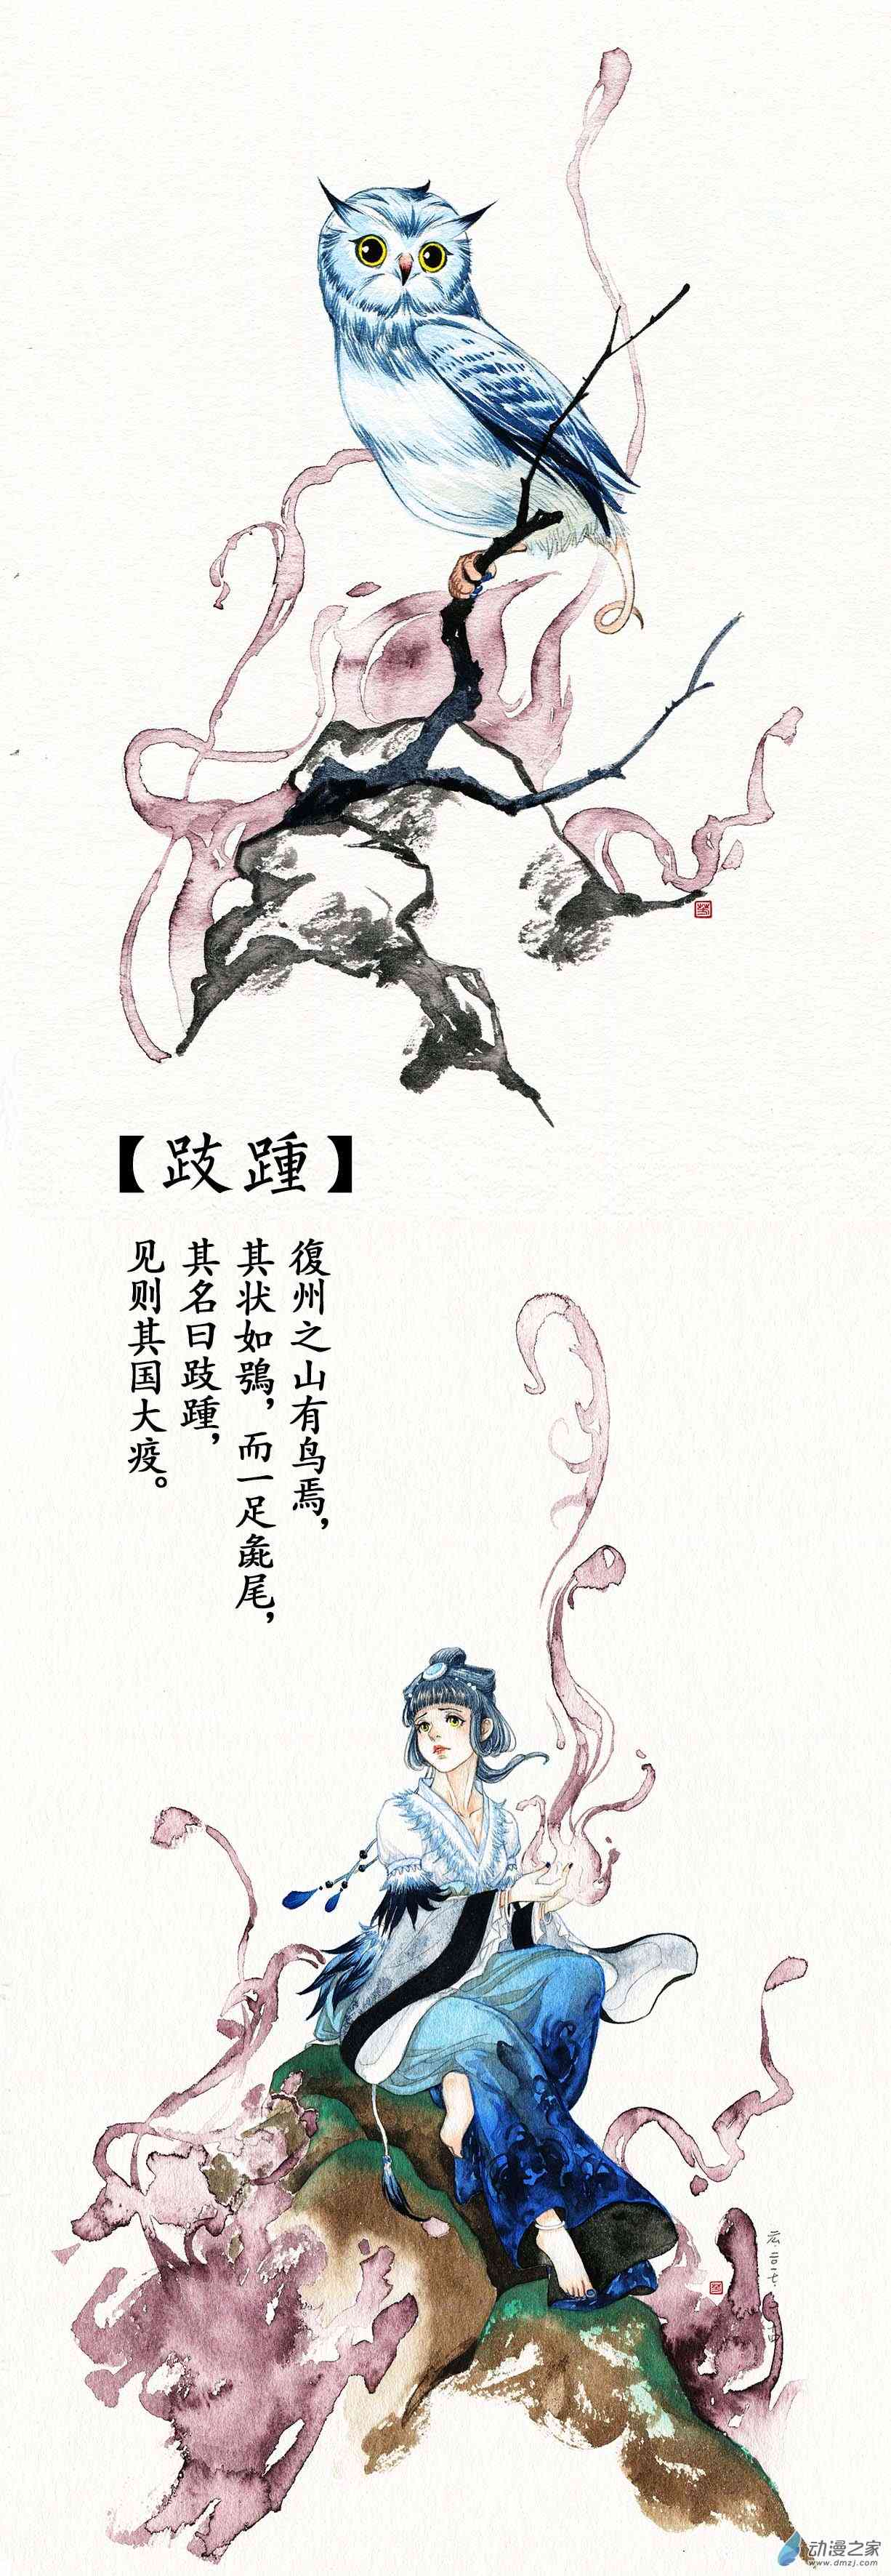 【跂踵】
復州之山有鸟焉，
其状如鴞，而一足彘尾，
其名曰跂踵，
见则其国大疫。
动漫之家
www.dmzj.com